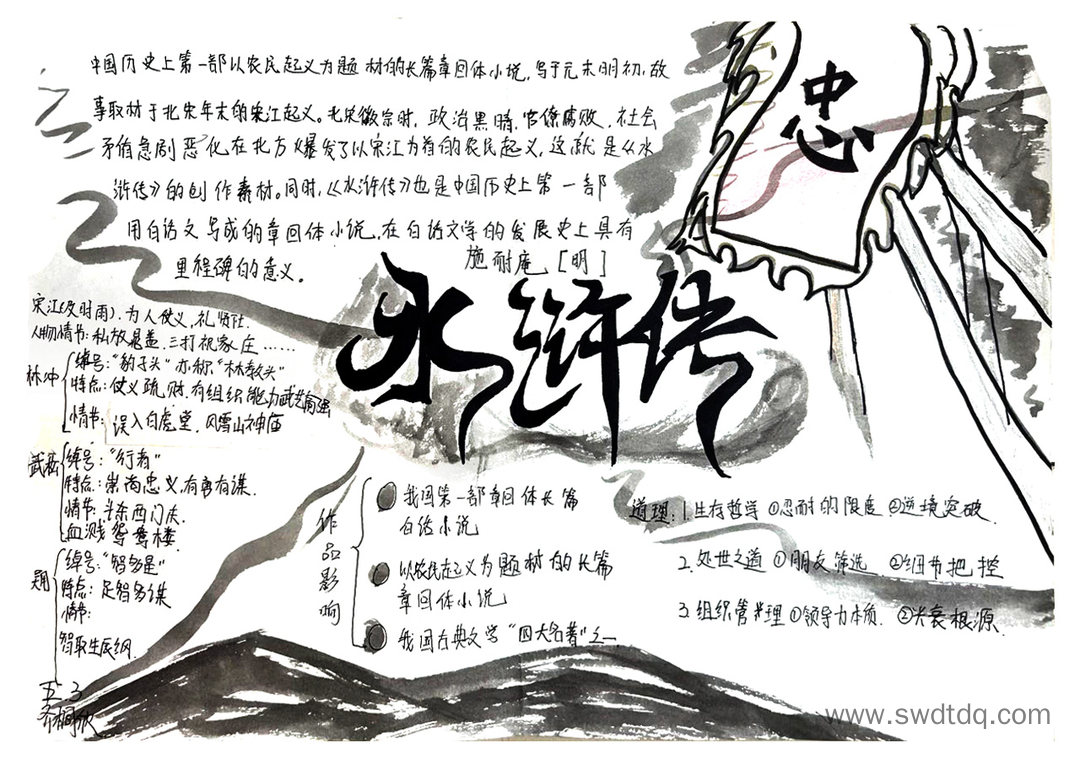 中国历史上第一部以农民起义为题材的长篇章回体小说,写于元末明初,故
事取材于北宋年末的宋江起义。北宋徽宗时,政治黑暗,官僚腐败,社会
矛盾急剧恶化在北方爆发了以宋江为首的农民起义,这就是《水
浒传》的创作素材。同时,《水浒传》也是中国历史上第一部
用白话文写成的章回体小说,在白话文学的发展史上具有
里程碑的意义。
施耐庵[明]
忠
水浒传
宋江(及时雨).为人仗义,礼贤士.
人物情节:私放晁盖.三打祝家庄……
林冲
绰号:"豹子头"亦称"林教头"
特点:仗义疏财.有组织能力武艺高强
情节:误入白虎堂.风雪山神庙
武松
绰号:"行者"
特点:崇尚忠义,有勇有谋.
情节:斗杀西门庆.
血溅鸳鸯楼.
绰号:"智多星"
特点:足智多谋
情节:
智取生辰纲.
五3
作品影响
我国第一部章回体长篇
白话小说
以农民起义为题材的长篇
章回体小说
我国古典文学"四大名著"之一
道理:1.生存哲学 ①忍耐的限度 ②逆境突破.
2.处世之道 ①朋友筛选 ②细节把控
3.组织管理 ①领导力本质. ②兴衰根源.
www.swdtdq.com